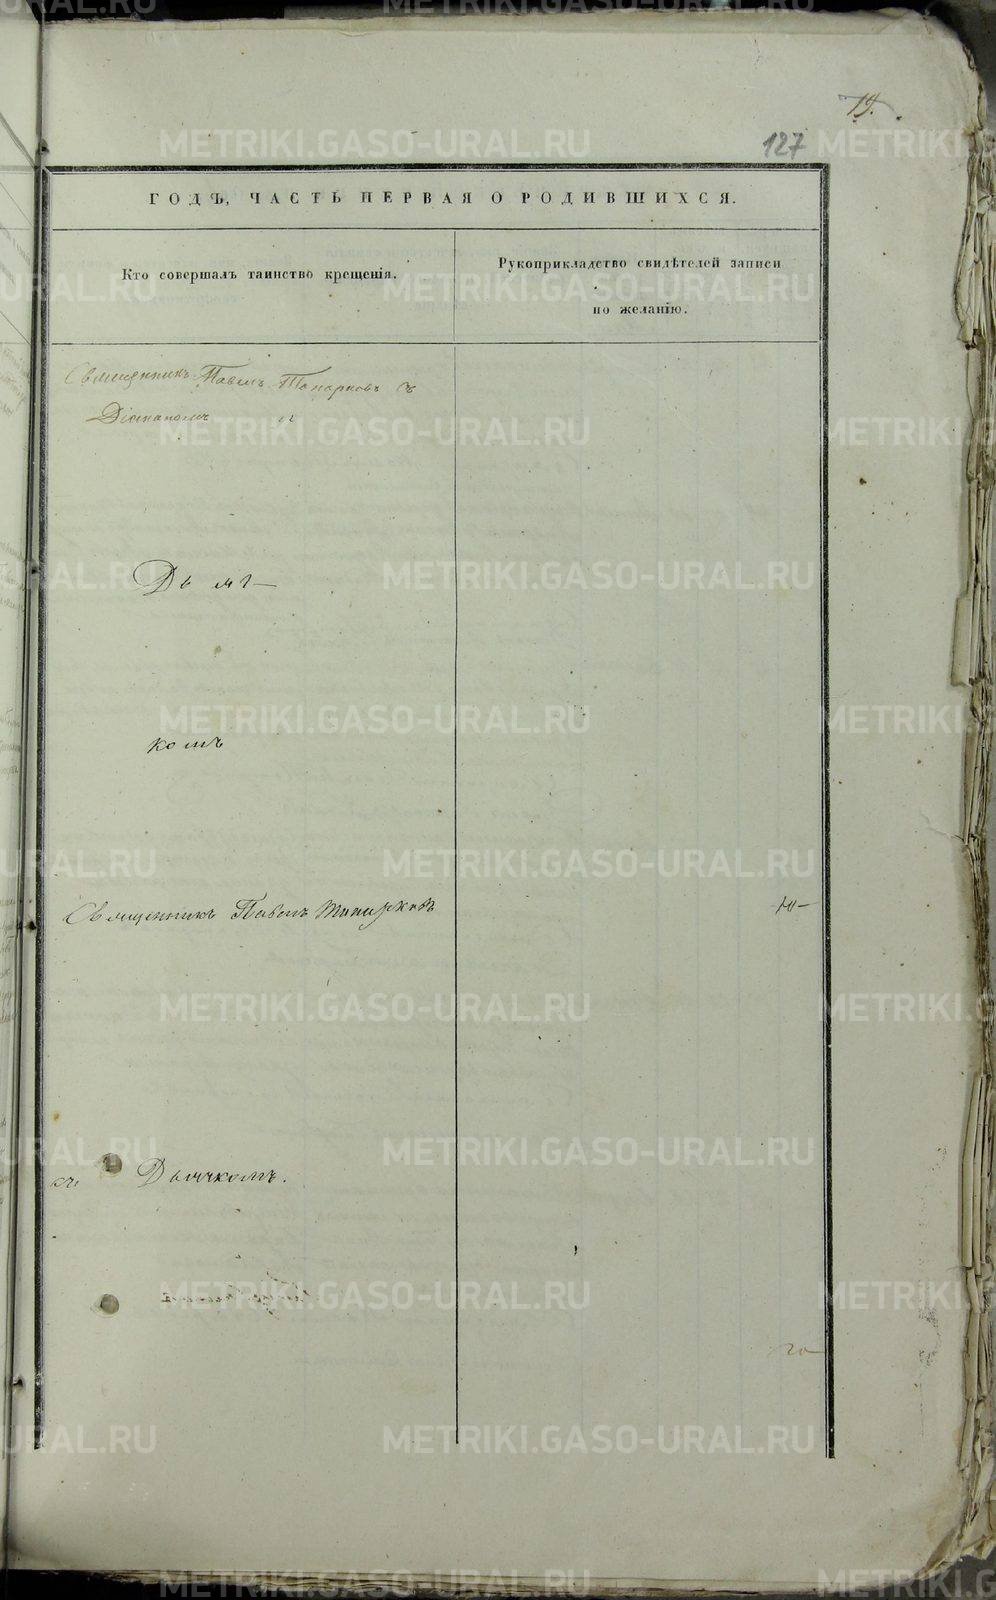 19.
127
ГОДЪ, ЧАСТЬ ПЕРВАЯ О РОДИВШИХСЯ.
Кто совершалъ таинство крещенія.
Рукоприкладство свидѣтелей записи
по желанію.
Священникъ Павелъ Топорковъ съ
Діакономъ и
Дья
комъ
Священникъ Павелъ Топорковъ
съ Дьячкомъ.
METRIKI.GASO-URAL.RU